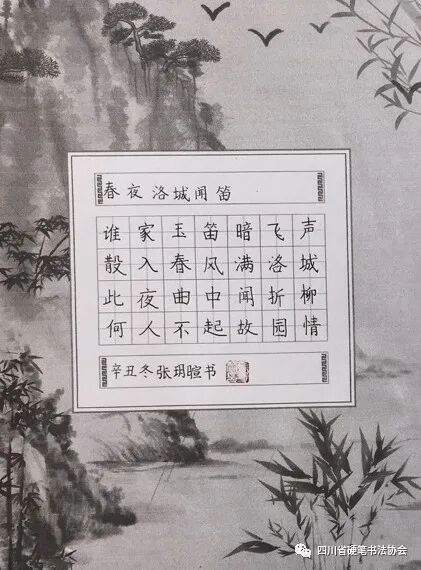 春夜洛城闻笛
谁家玉笛暗飞声
散入春风满洛城
此夜曲中闻折柳
何人不起故园情
辛丑冬张玥暄书
四川省硬笔书法协会